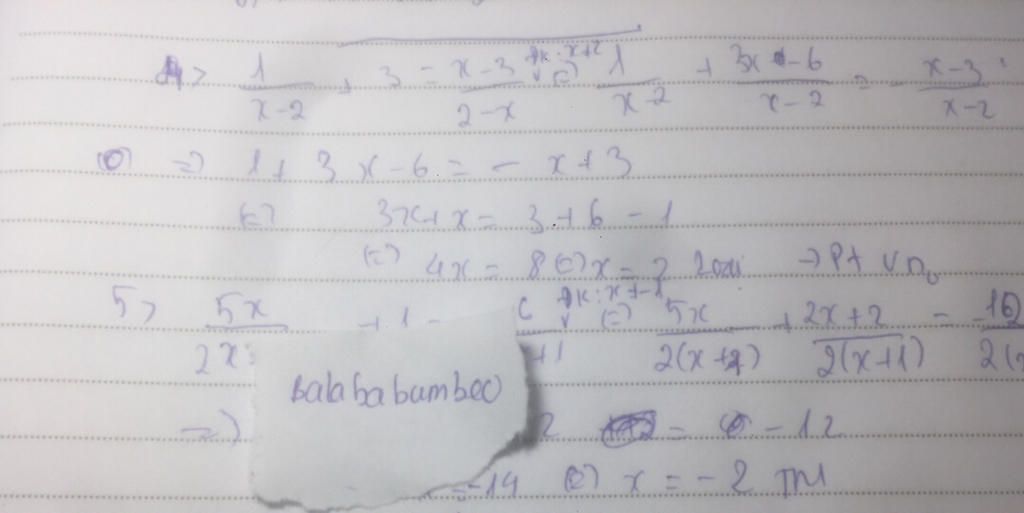 4> 1/(x-2) + 3 = (x-3)/(2-x) đk: x≠2 <=> 1/(x-2) + (3x-6)/(x-2) = -(x-3)/(x-2)
=> 1 + 3x - 6 = - x + 3
<=> 3x + x = 3 + 6 - 1
<=> 4x = 8 <=> x = 2 loại -> Pt vno
5> 5x/2x + 1 = +1 đk: x≠-1 <=> 5x/2(x+1) + (2x+2)/2(x+1) = -12/2(x
Balababumbeo
=> 2 = -12
x = -14 <=> x = -2 TM